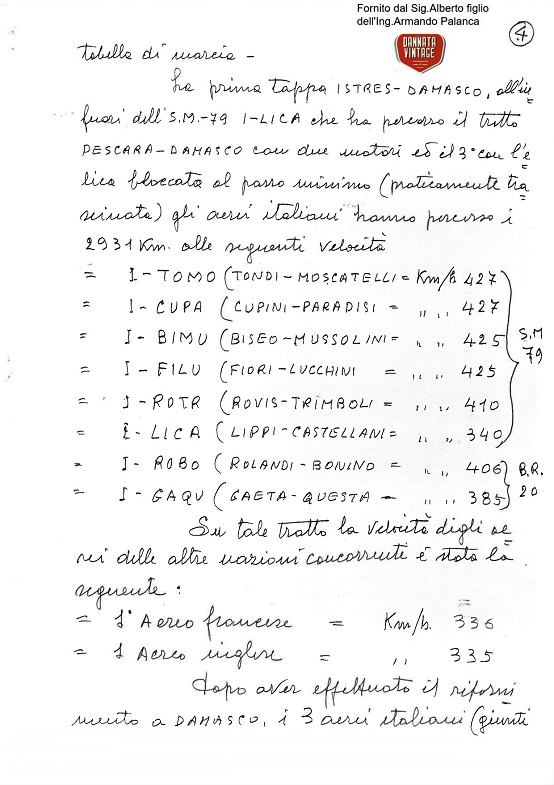 Fornito dal Sig.Alberto figlio
dell'Ing.Armando Palanca
4
DANNATA
VINTAGE
tabella di marcia -
La prima tappa ISTRES-DAMASCO, all'in
fuori dell'S.M.-79 I-LICA che ha percorso il tratto
PESCARA-DAMASCO con due motori ed il 3° con l'e
lica bloccata al passo minimo (praticamente tra
scinata) gli aerei italiani hanno percorso i
2931 Km. alle seguenti velocità
= I-TOMO (TONDI-MOSCATELLI = Km/h 427
= I-CUPA (CUPINI-PARADISI = ,, ,, 427
= I-BIMU (BISEO-MUSSOLINI = ,, ,, 425
= I-FILU (FIORI-LUCCHINI = ,, ,, 425
= I-ROTR (ROVIS-TRIMBOLI = ,, ,, 410
= I-LICA (LIPPI-CASTELLANI = ,, ,, 340
S.M
79
= I-ROBO (ROLANDI-BONINO = ,, ,, 406
= I-GAQU (GAETA-QUESTA = ,, ,, 385
B.R.
20
Su tale tratto la velocità degli ae
rei delle altre nazioni concorrente é stata la
seguente:
= 1° Aereo francese = Km/h. 336
= 1 Aereo inglese = ,, 335
Dopo aver effettuato il riforni
mento a DAMASCO, i 3 aerei italiani (giunti